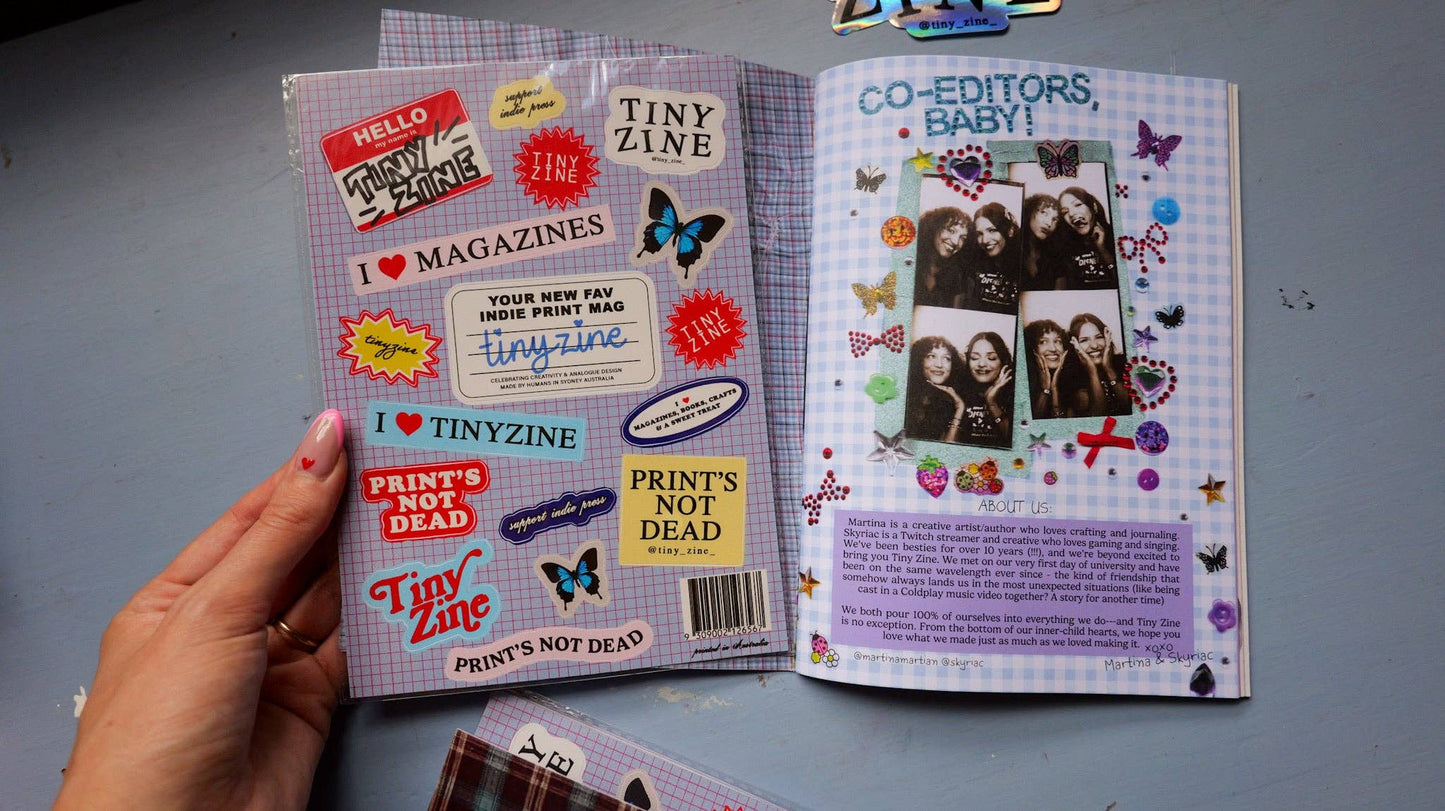 ZINE
@tiny_zine_
HELLO
my name is
TINY
ZINE
support
indie press
TINY
ZINE
TINY
ZINE
@tiny_zine_
I ♥ MAGAZINES
YOUR NEW FAV
INDIE PRINT MAG
tinyzine
CELEBRATING CREATIVITY & ANALOGUE DESIGN
MADE BY HUMANS IN SYDNEY AUSTRALIA
TINY
ZINE
tinyzine
I ♥
MAGAZINES, BOOKS, CRAFTS
& A SWEET TREAT
I ♥ TINYZINE
PRINT'S
NOT
DEAD
support indie press
PRINT'S
NOT
DEAD
@tiny_zine_
Tiny
Zine
PRINT'S NOT DEAD
9 309002 126567
printed in Australia
CO-EDITORS,
BABY!
ABOUT US:
Martina is a creative artist/author who loves crafting and journaling.
Skyriac is a Twitch streamer and creative who loves gaming and singing.
We've been besties for over 10 years (!!!), and we're beyond excited to
bring you Tiny Zine. We met on our very first day of university and have
been on the same wavelength ever since - the kind of friendship that
somehow always lands us in the most unexpected situations (like being
cast in a Coldplay music video together? A story for another time)
We both pour 100% of ourselves into everything we do---and Tiny Zine
is no exception. From the bottom of our inner-child hearts, we hope you
love what we made just as much as we loved making it. xoxo
@martinamartian @skyriac
Martina & Skyriac